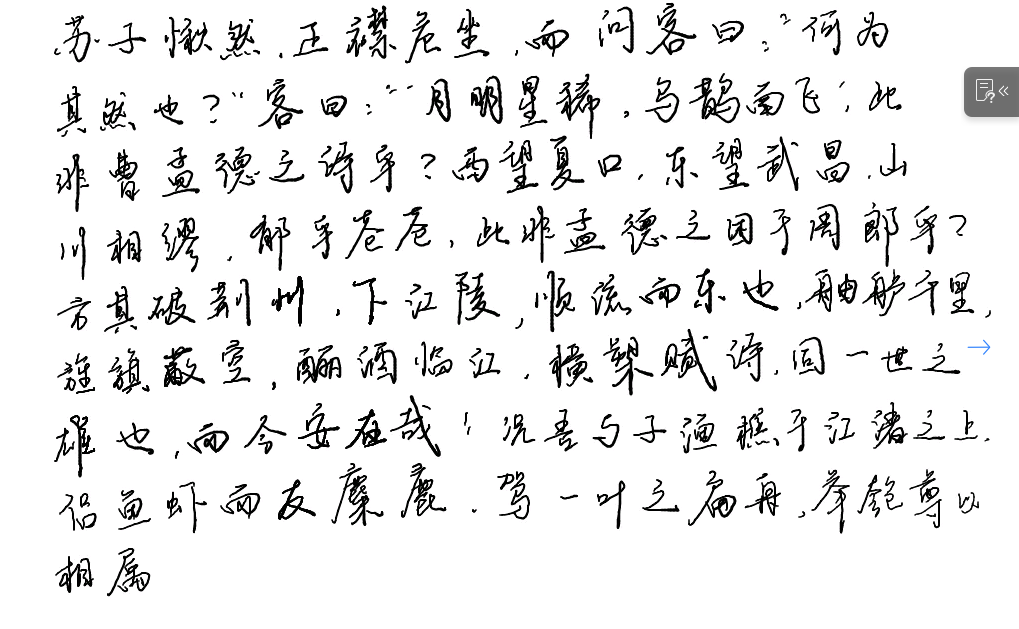 苏子愀然,正襟危坐,而问客曰:“何为
其然也?“客曰:“‘月明星稀,乌鹊南飞’,此
非曹孟德之诗乎?西望夏口,东望武昌,山
川相缪,郁乎苍苍,此非孟德之因于周郎乎?
方其破荆州,下江陵,顺流而东也,舳舻千里,
旌旗蔽空,酾酒临江,横槊赋诗,固一世之
雄也,而今安在哉!况吾与子渔樵于江渚之上,
侣鱼虾而友麋鹿,驾一叶之扁舟,举匏尊以
相属